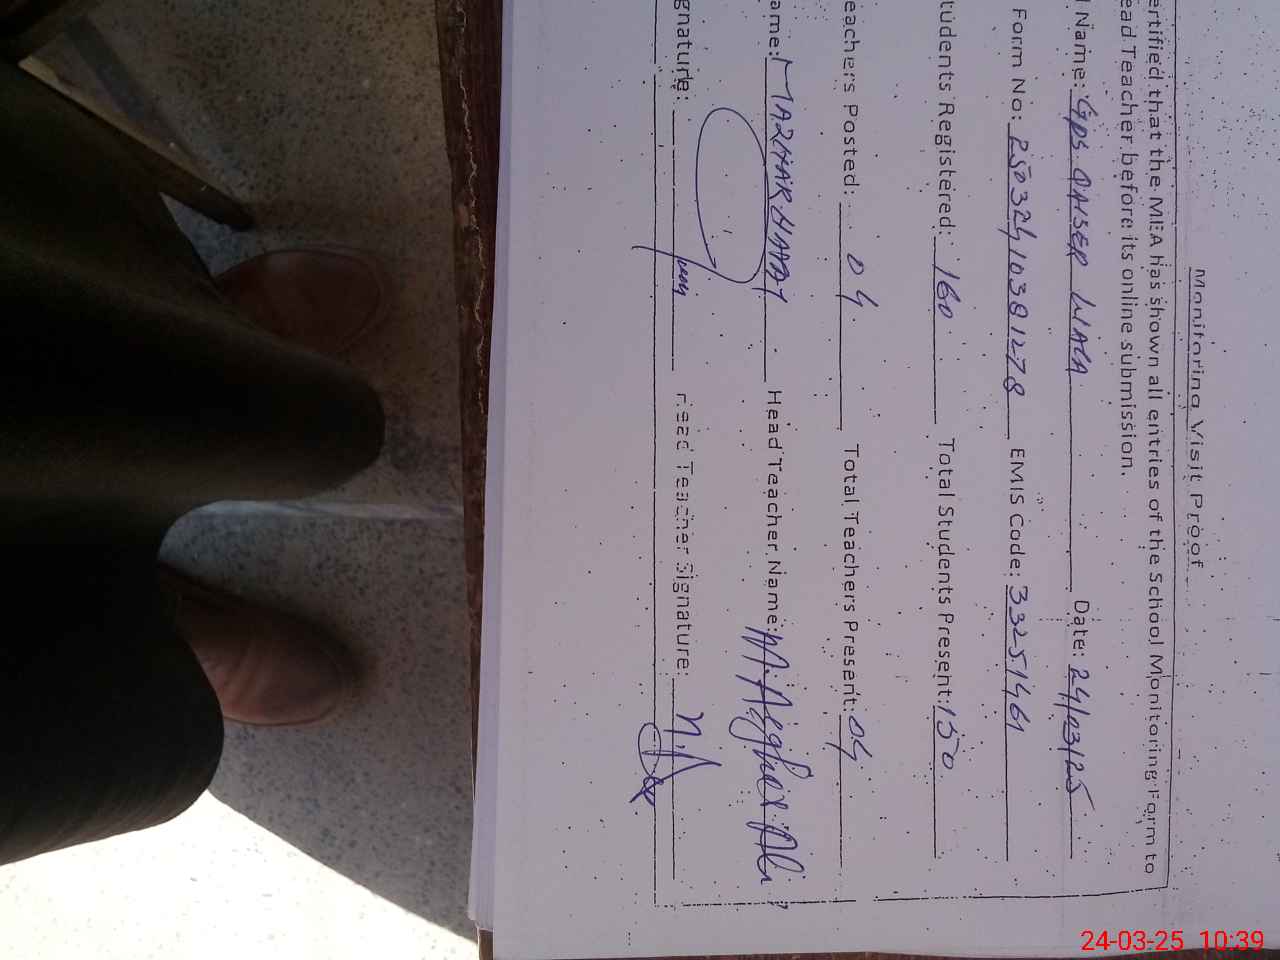 Monitoring Visit Proof
ertified that the MEA has shown all entries of the School Monitoring Form to
ead Teacher before its online submission.
l Name: GPS QAISER WALA Date: 24/03/25
Form No: 25032410381278 EMIS Code: 33251461
tudents Registered: 160 Total Students Present: 150
eachers Posted: 04 Total Teachers Present: 04
ame: MAZHAR HAYAT Head Teacher Name: M. Asghar Ali
gnature: Head Teacher Signature:
24-03-25 10:39